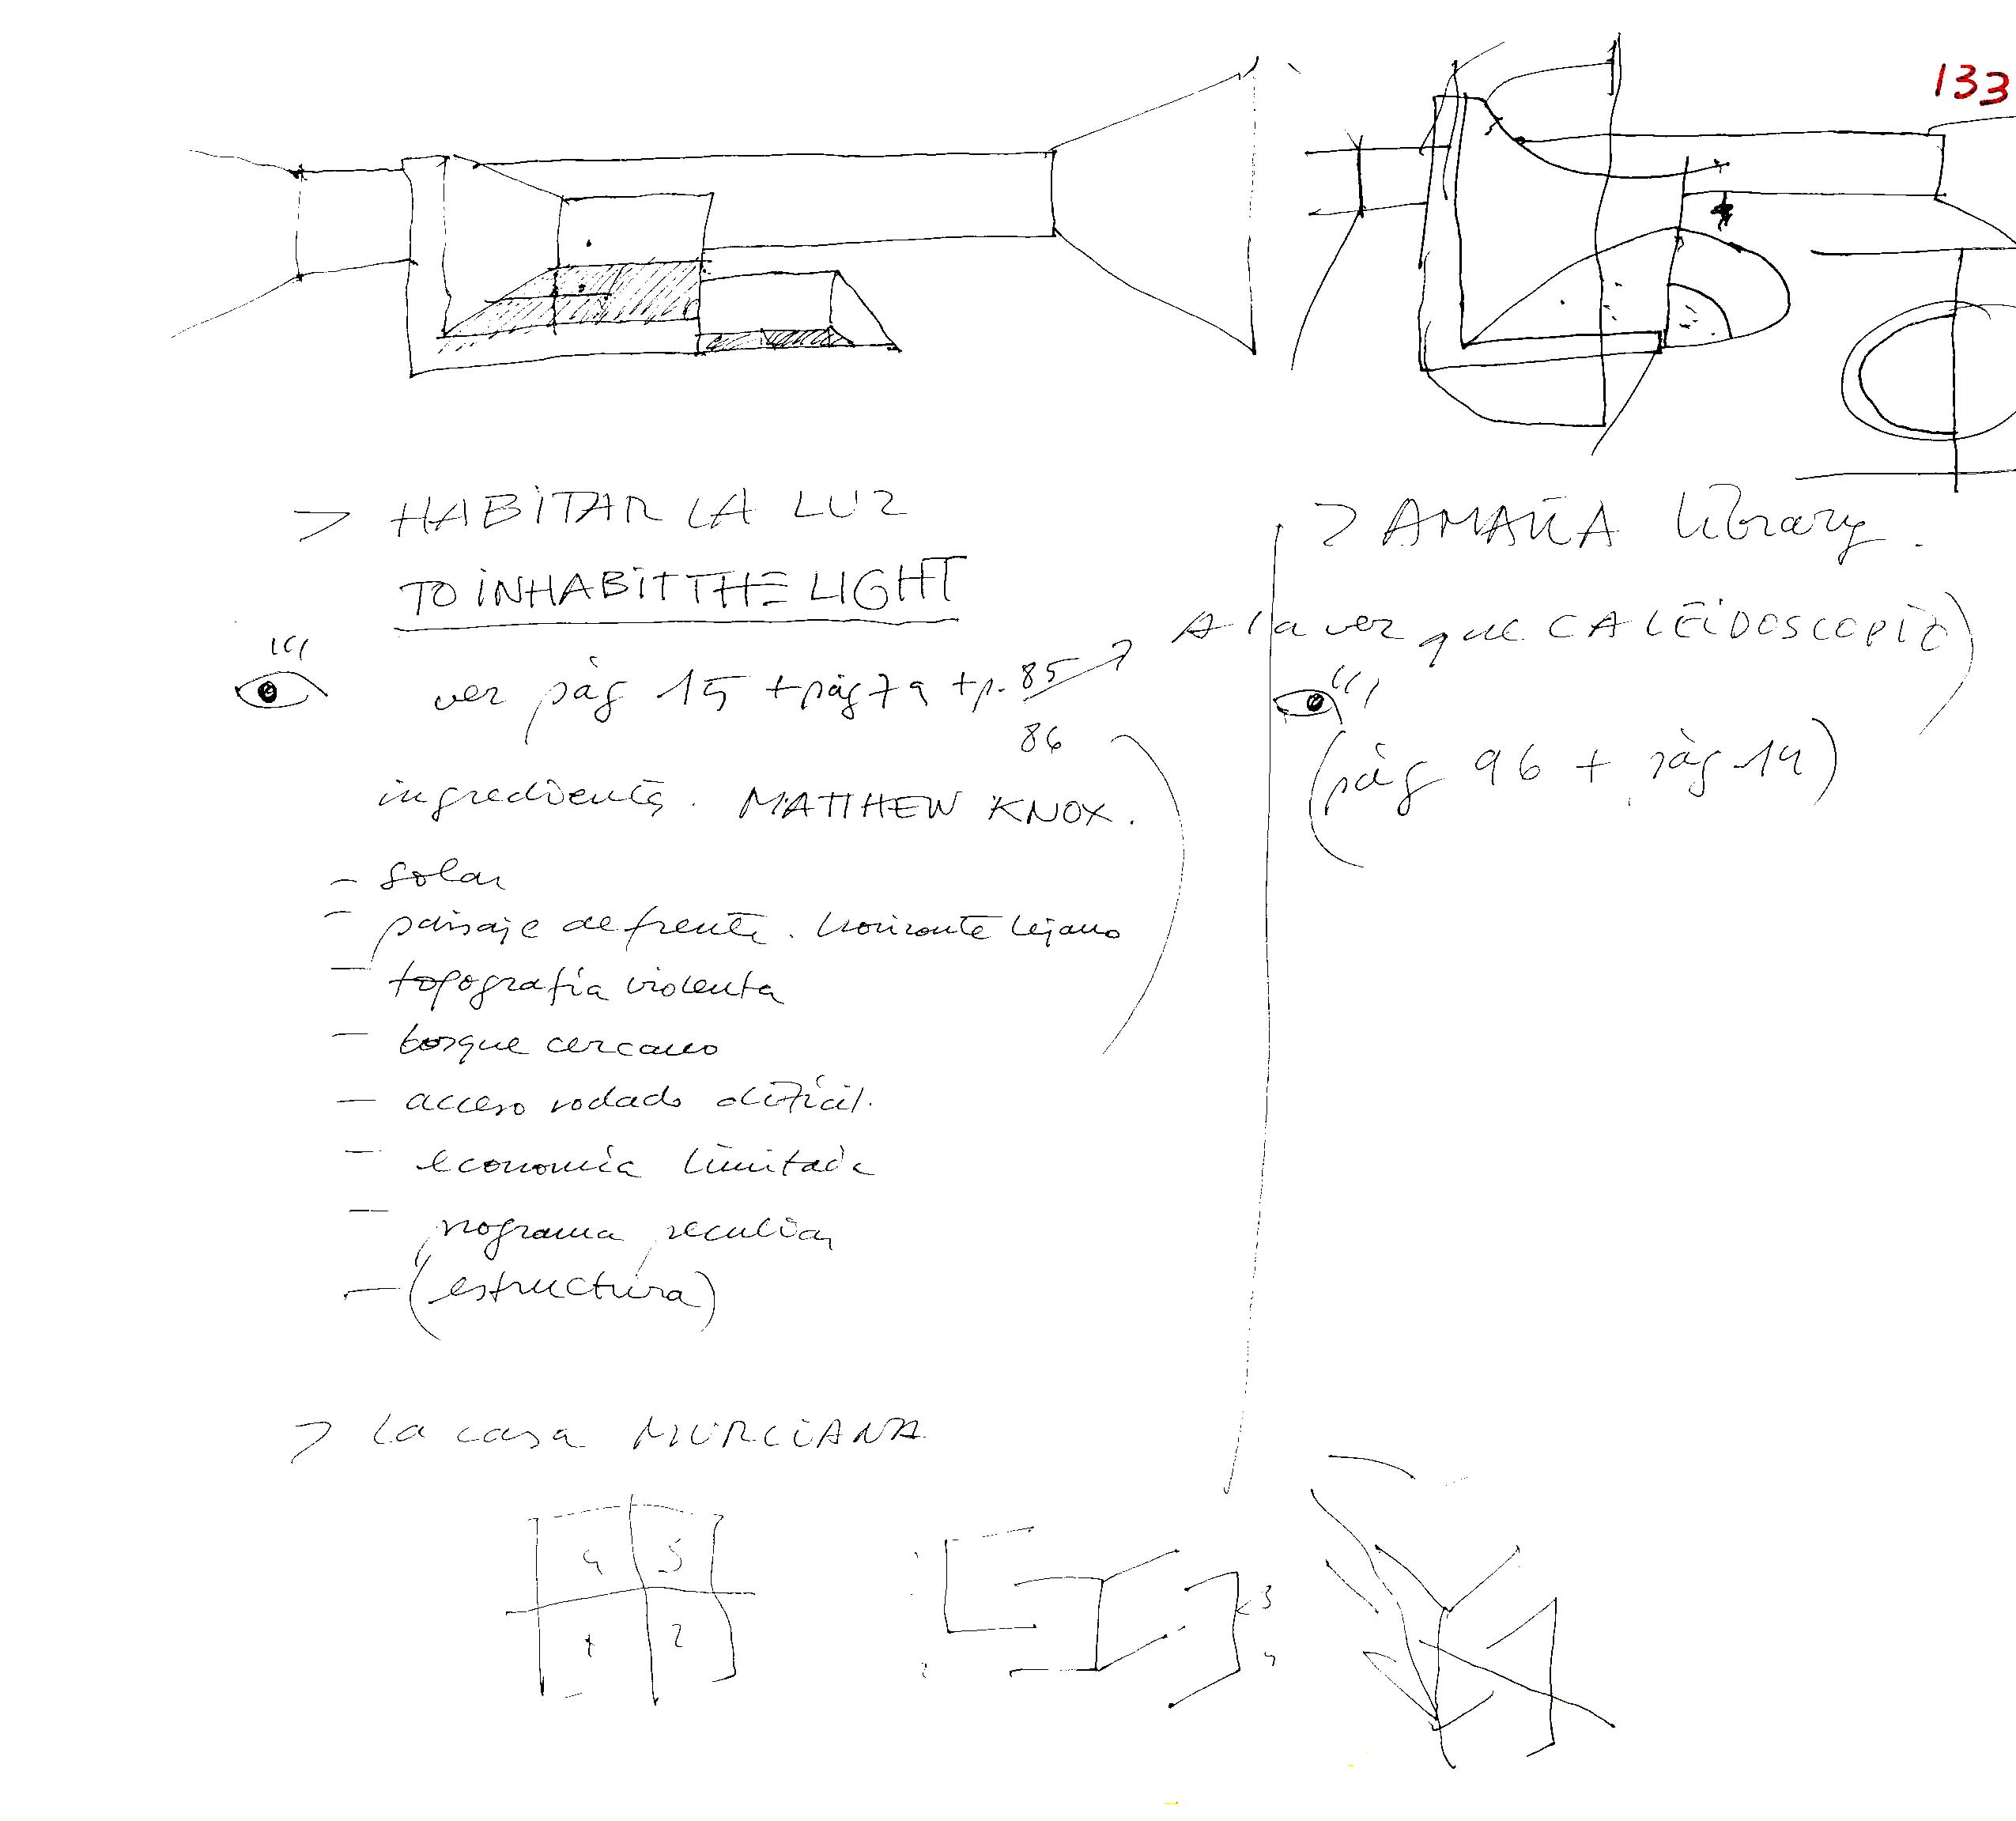 133
> HABITAR LA LUZ
TO INHABIT THE LIGHT
ver pág 15 + pág 79 + p. 85
86
ingredientes. MATTHEW KNOX.
- solar
- paisaje de frente. horizonte lejano
- topografía violenta
- bosque cercano
- acceso rodado difícil.
- economía limitada
- programa peculiar
- (estructura)
> la casa MURCIANA
4 3
1 2
3
4
> library.
A la vez que CALEIDOSCOPIO)
(pág 96 + pág 14)